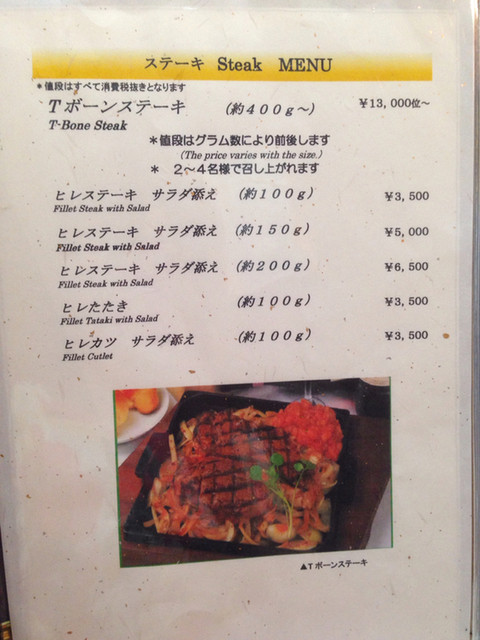 ステーキ Steak MENU
*値段はすべて消費税抜きとなります
Tボーンステーキ (約400g~) ¥13,000位~
T-Bone Steak
*値段はグラム数により前後します
(The price varies with the size.)
* 2~4名様で召し上がれます
ヒレステーキ サラダ添え (約100g) ¥3,500
Fillet Steak with Salad
ヒレステーキ サラダ添え (約150g) ¥5,000
Fillet Steak with Salad
ヒレステーキ サラダ添え (約200g) ¥6,500
Fillet Steak with Salad
ヒレたたき (約100g) ¥3,500
Fillet Tataki with Salad
ヒレカツ サラダ添え (約100g) ¥3,500
Fillet Cutlet
▲Tボーンステーキ